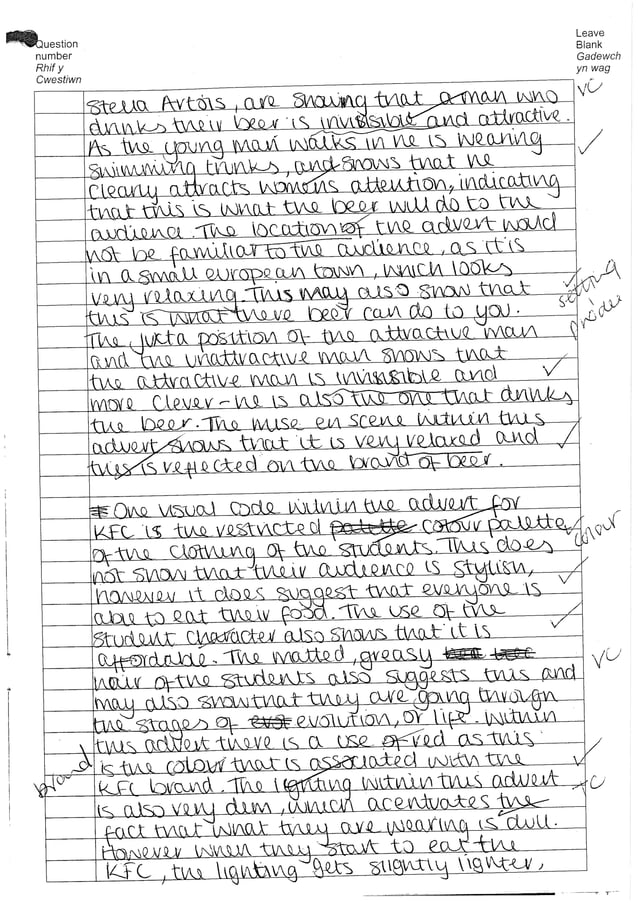 Question
number
Rhif y
Cwestiwn
Leave
Blank
Gadewch
yn wag
VC
Stella Artois, are showing that a man who
drinks their beer is and attractive.
As the young man walks in he is wearing
swimming trunks, and shows that he
clearly attracts womens attention, indicating
that this is what the beer will do to the
audience. The location of the advert would
not be familiar to the audience, as it is
in a small european town, which looks
very relaxing. This may also show that
setting
this is what there beer can do to you.
The juxta position of the attractive man
and the unattractive man shows that
the attractive man is and
more clever - he is also the one that drinks
the beer. The mise en scene within this
advert shows that it is very relaxed and
this is reflected on the brand of beer.
One visual code within the advert for
KFC is the restricted palette colour palette
colour
of the clothing of the students. This does
not show that their audience is stylish,
however it does suggest that everyone is
able to eat their food. The use of the
student character also shows that it is
affordable. The matted, greasy
VC
hair of the students also suggests this and
may also show that they are going through
the stages of evolution, or life. Within
this advert there is a use of red as this
brand
is the colour that is associated with the
KFC brand. The lighting within this advert
TC
is also very dim, which acentuates the
fact that what they are wearing is dull.
However when they start to eat the
KFC, the lighting gets slightly lighter,